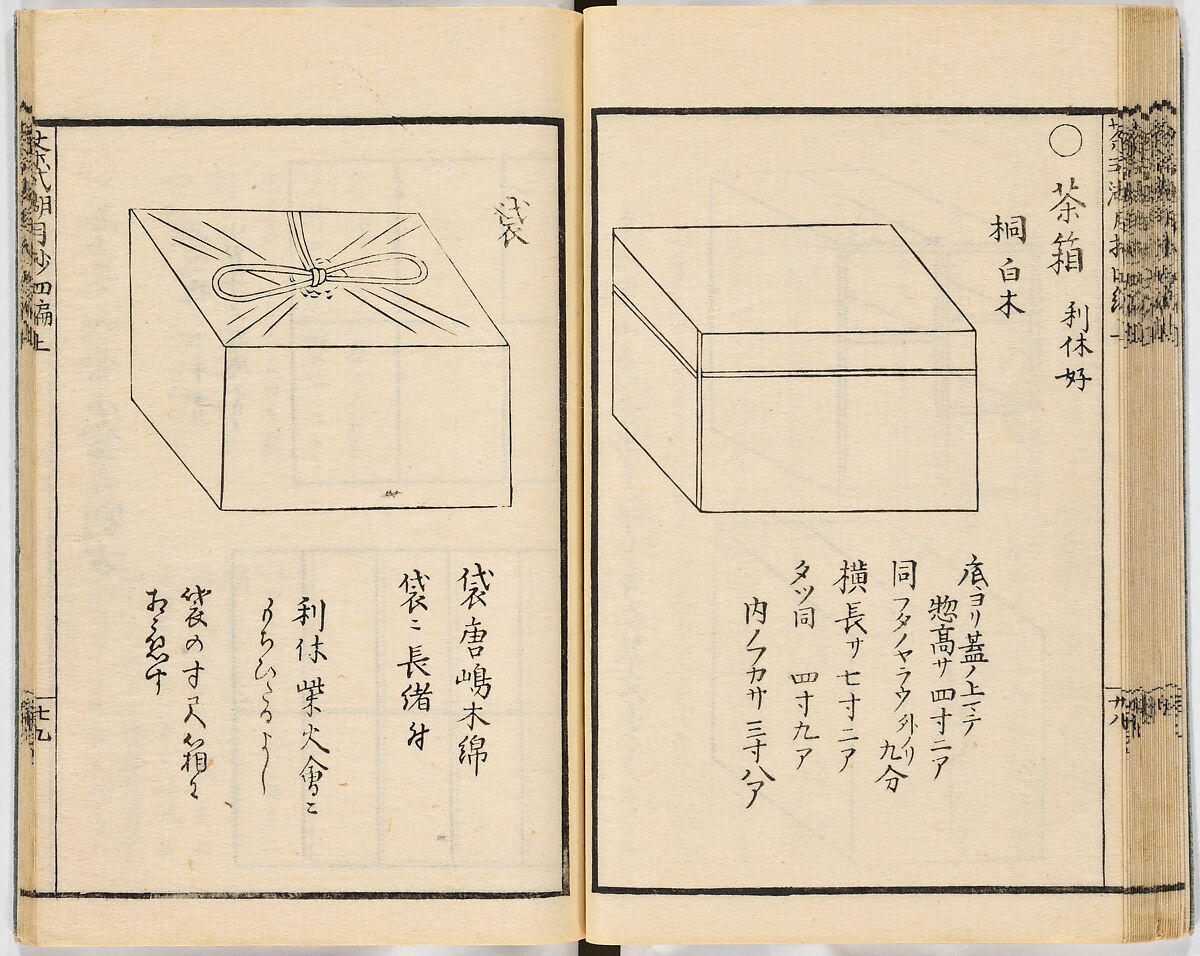 ○茶箱 利休好
桐 白木
底ヨリ蓋ノ上マテ
惣高サ四寸二ア
同フタノヤラウ外ノリ九分
横長サ七寸二ア
タツ同 四寸九ア
内ノフカサ三寸八ア
袋
袋唐嶋木綿
袋ニ長緒付
利休柴火會ニ
もちひたるよし
袋の寸尺箱に
茶式湖月抄四編上